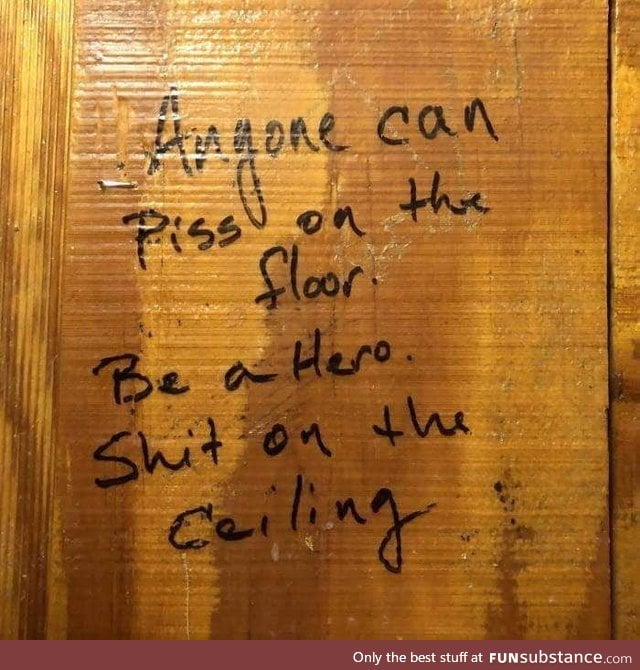 Anyone can
Piss on the
floor.
Be a Hero.
Shit on the
Ceiling
Only the best stuff at FUNsubstance.com